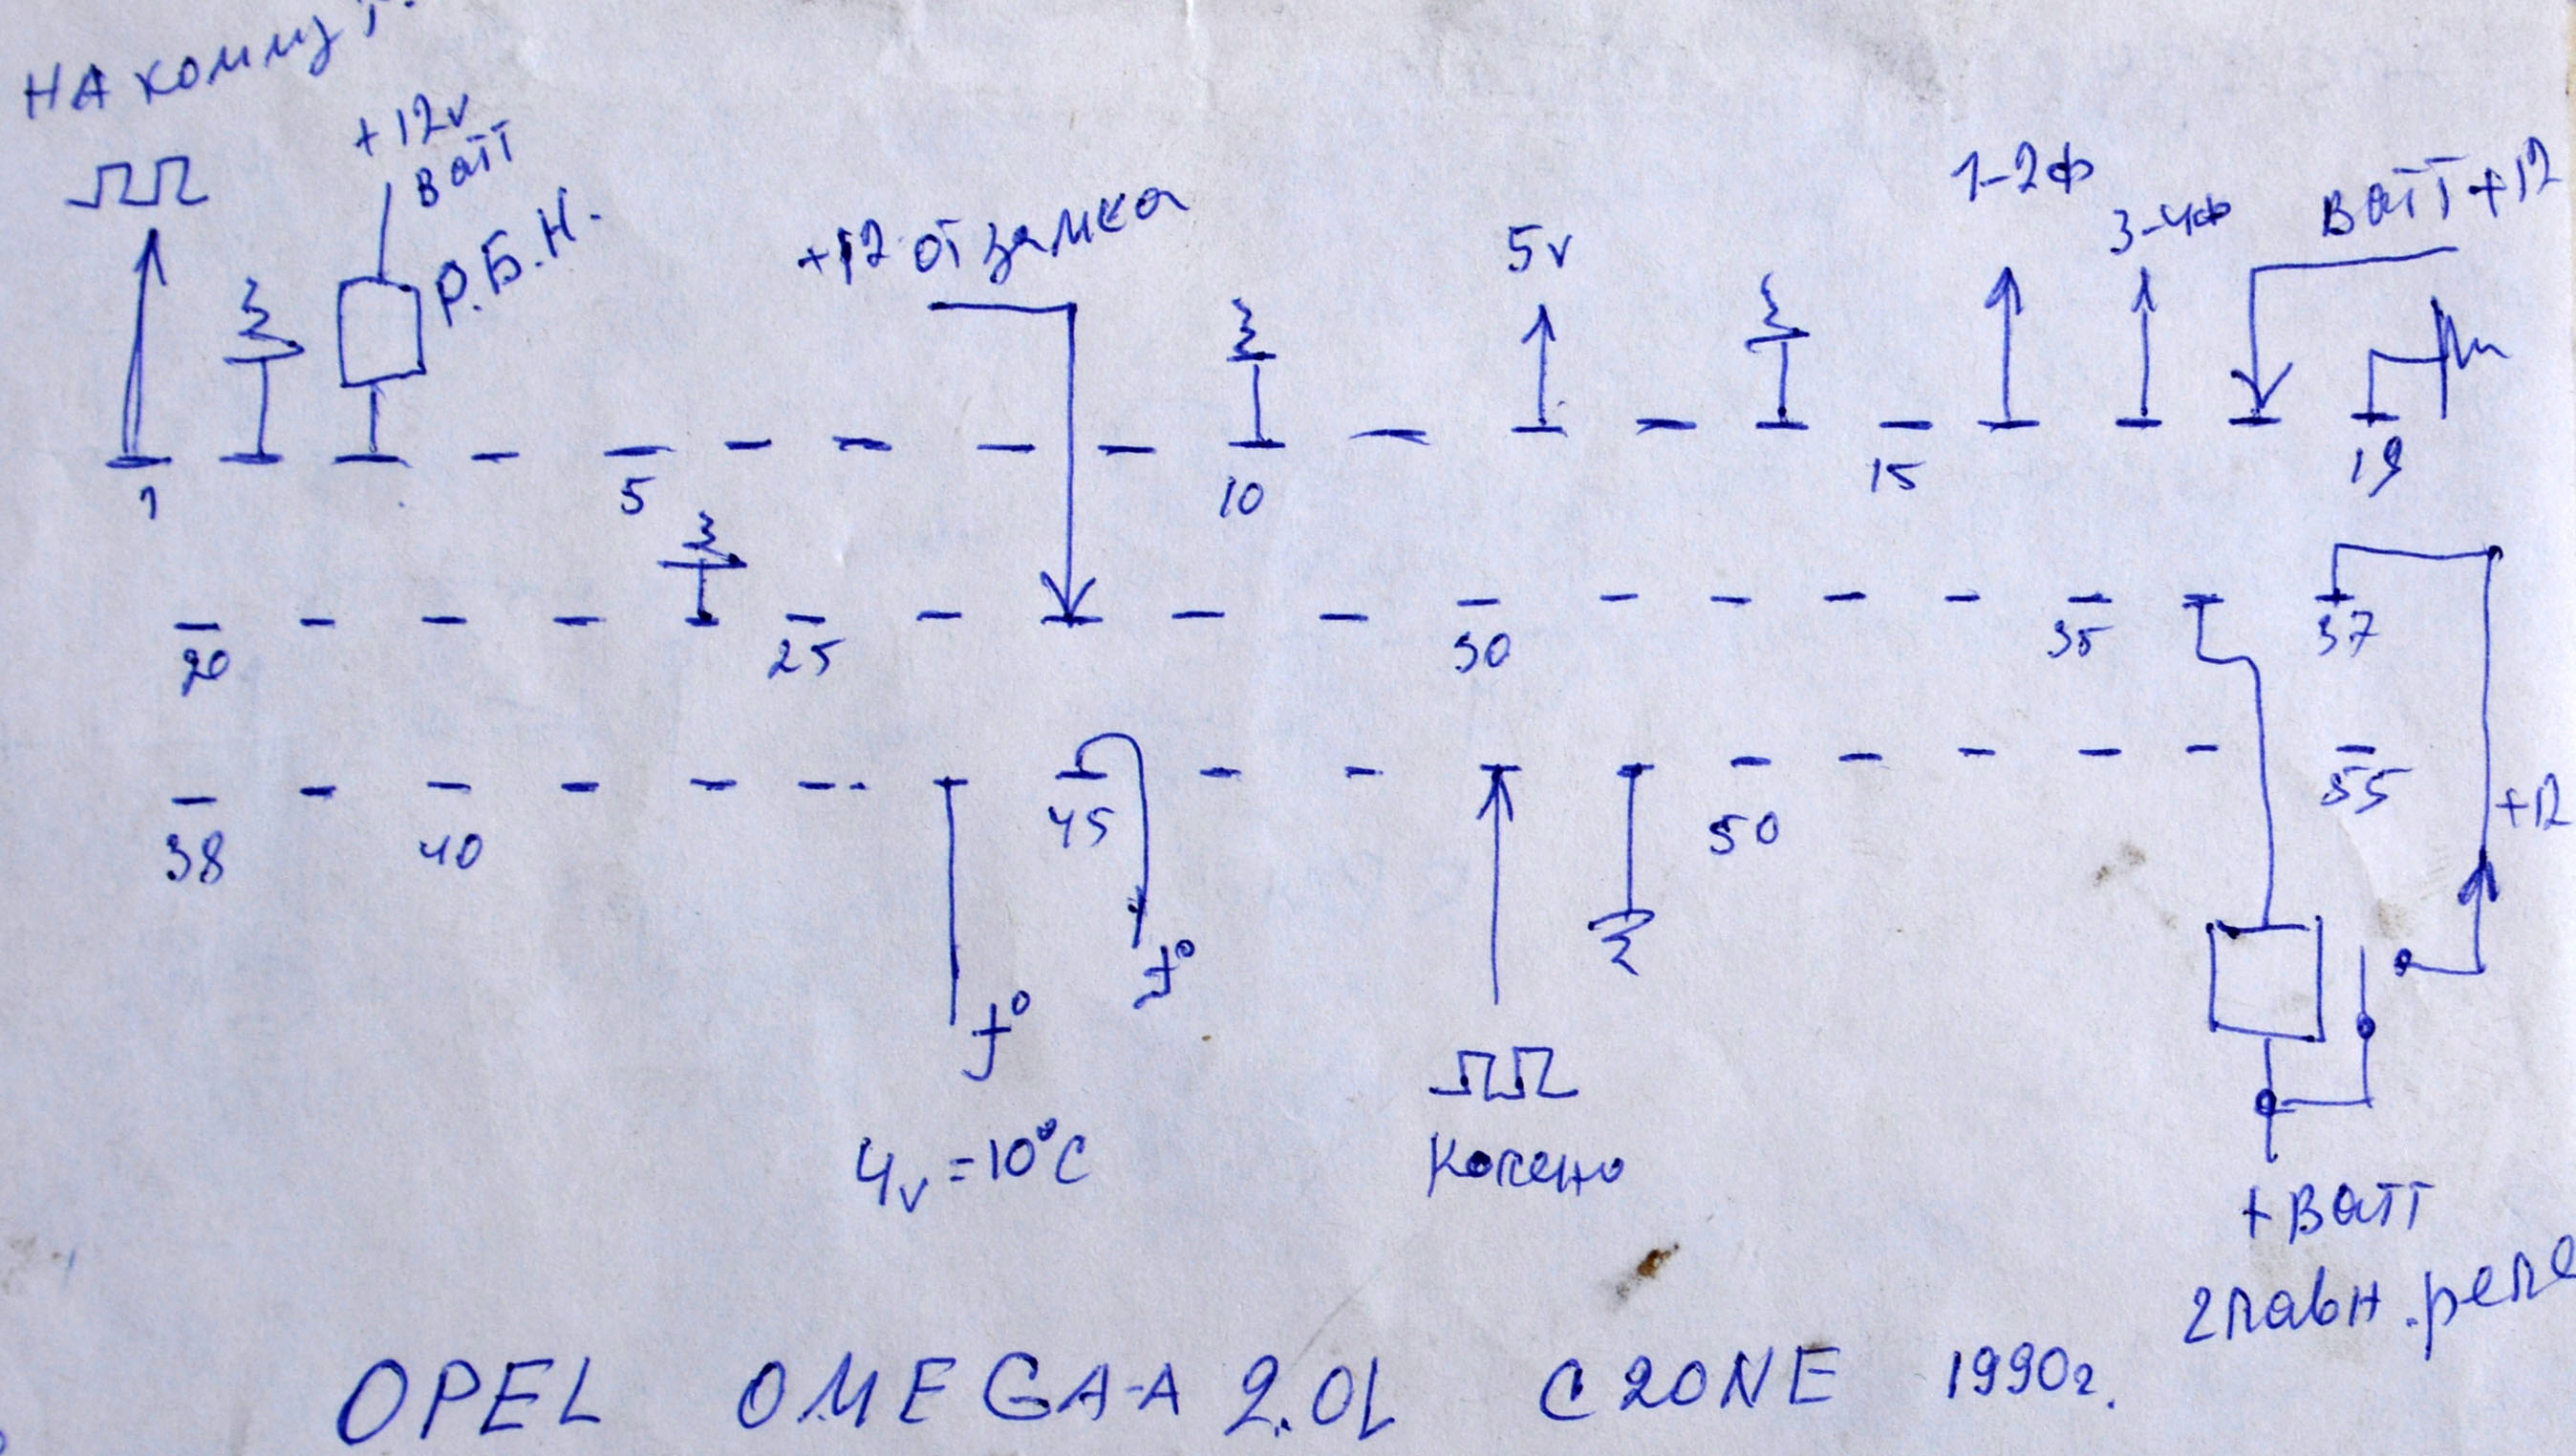 НА комму
+12v
Batt
Р.Б.Н.
+12 от замка
5v
1-2ф
3-4ф
Batt +12
1
5
10
15
19
20
25
30
35
37
38
40
45
50
55
+12
t°
t°
4v = 10°C
Колено
+ Batt
главн. реле
OPEL OMEGA-A 2.0L C20NE 1990г.